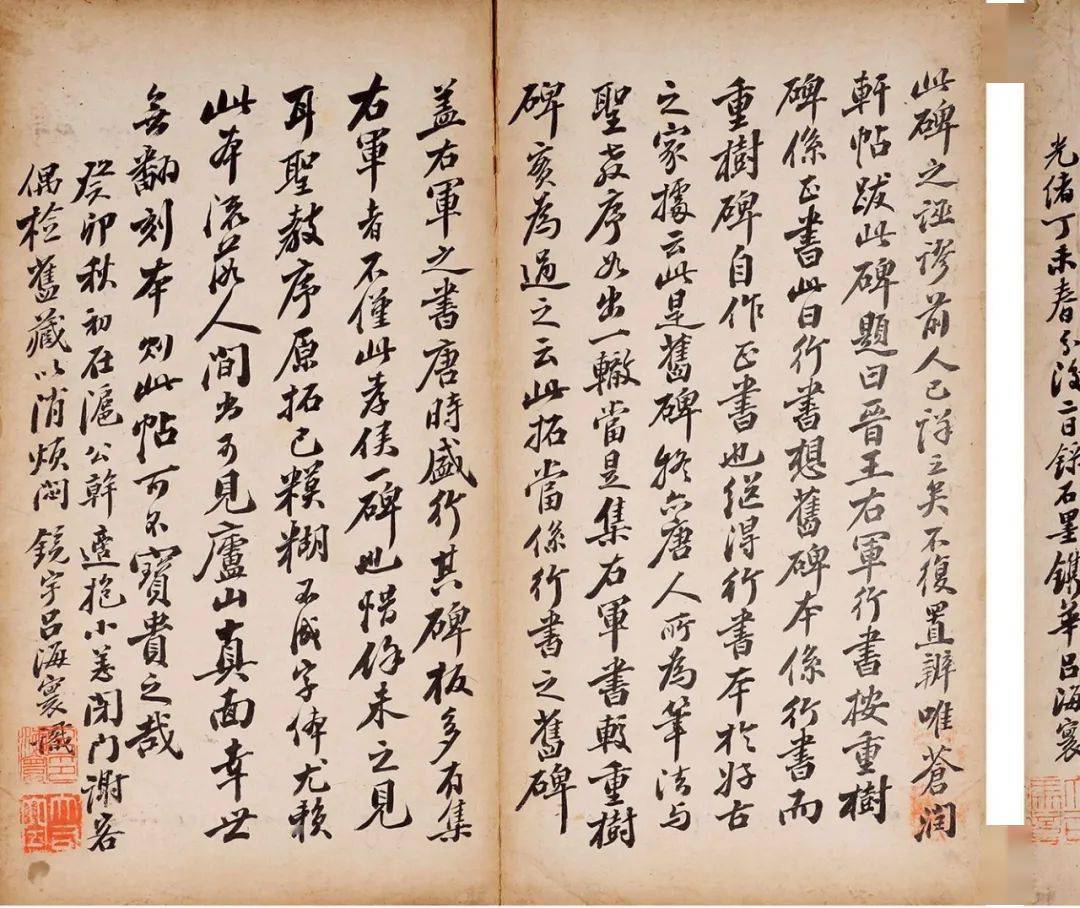 光緒丁未春分後二日錄石墨鐫華呂海寰
此碑之誣謬前人已詳之矣不復置辨唯蒼潤
軒帖跋此碑題曰晉王右軍行書按重樹
碑係正書此曰行書想舊碑本係行書而
重樹碑自作正書也繼得行書本於好古
之家據云此是舊碑終六唐人所為筆法與
聖教序如出一轍當是集右軍書較重樹
碑實為過之云此拓當係行書之舊碑
蓋右軍之書唐時盛行其碑板多有集
右軍者不僅此孝侯一碑也惜余未之見
耳聖教序原拓已糢糊不成字俾尤賴
此本流落人間尚可見廬山真面幸世
無翻刻本則此帖可不寶貴之哉
癸卯秋初在滬公幹適抱小恙閉門謝客
偶檢舊藏以消煩悶鏡宇呂海寰識